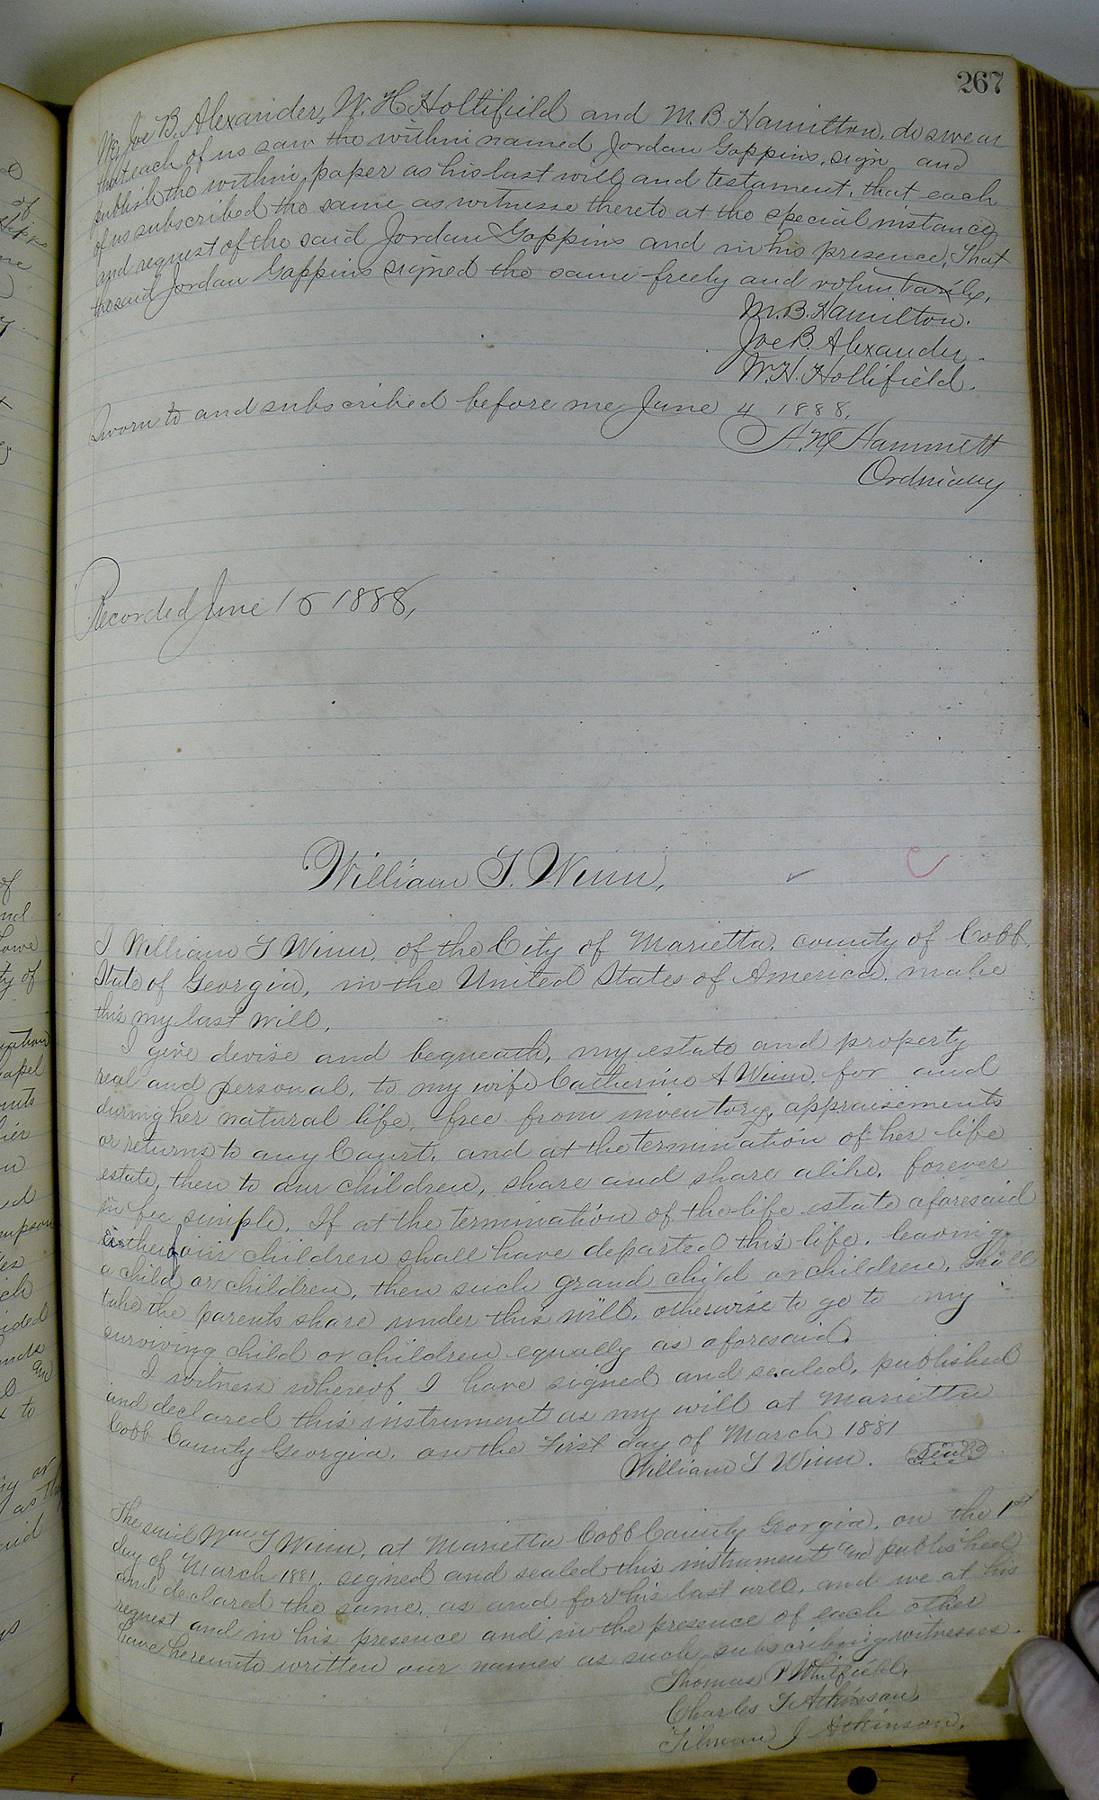 267
We, Joe B. Alexander, W. H. Hollifield and M. B. Hamilton, do swear
that each of us saw the within named Jordan Gappins, sign and
publish the within paper as his last will and testament, that each
of us subscribed the same as witnesse thereto at the special instance
and request of the said Jordan Gappins and in his presence, That
the said Jordan Gappins signed the same freely and voluntarily,
M. B. Hamilton.
Joe B. Alexander.
W. H. Hollifield.
Sworn to and subscribed before me June 4 1888,
H. M. Hammett
Ordinary
Recorded June 15 1888,
William T. Winn,
I William T Winn, of the City of Marietta, county of Cobb,
State of Georgia, in the United States of America, make
this my last will,
I give devise and bequeath, my estate and property
real and personal, to my wife Catherine A Winn, for and
during her natural life, free from inventory, appraisements
or returns to any Court, and at the termination of her life
estate, then to our children, share and share alike, forever
in fee simple, If at the termination of the life estate aforesaid
either of our children shall have departed this life, leaving
a child or children, then such grand child or children, shall
take the parents share under this will, otherwise to go to my
surviving child or children equally as aforesaid.
I witness whereof I have signed and sealed, published
and declared this instrument as my will at Marietta
Cobb County Georgia, on the First day of March 1881
William T Winn. Seal
The said Wm T Winn, at Marietta Cobb County Georgia, on the 1st
day of March 1881, signed and sealed this instrument and published
and declared the same, as and for his last will, and we at his
request and in his presence and in the presence of each other
have hereunto written our names as such subscribing witnesses.
Thomas Whitfield,
Charles T. Atkinson,
Tilman J Atkinson,